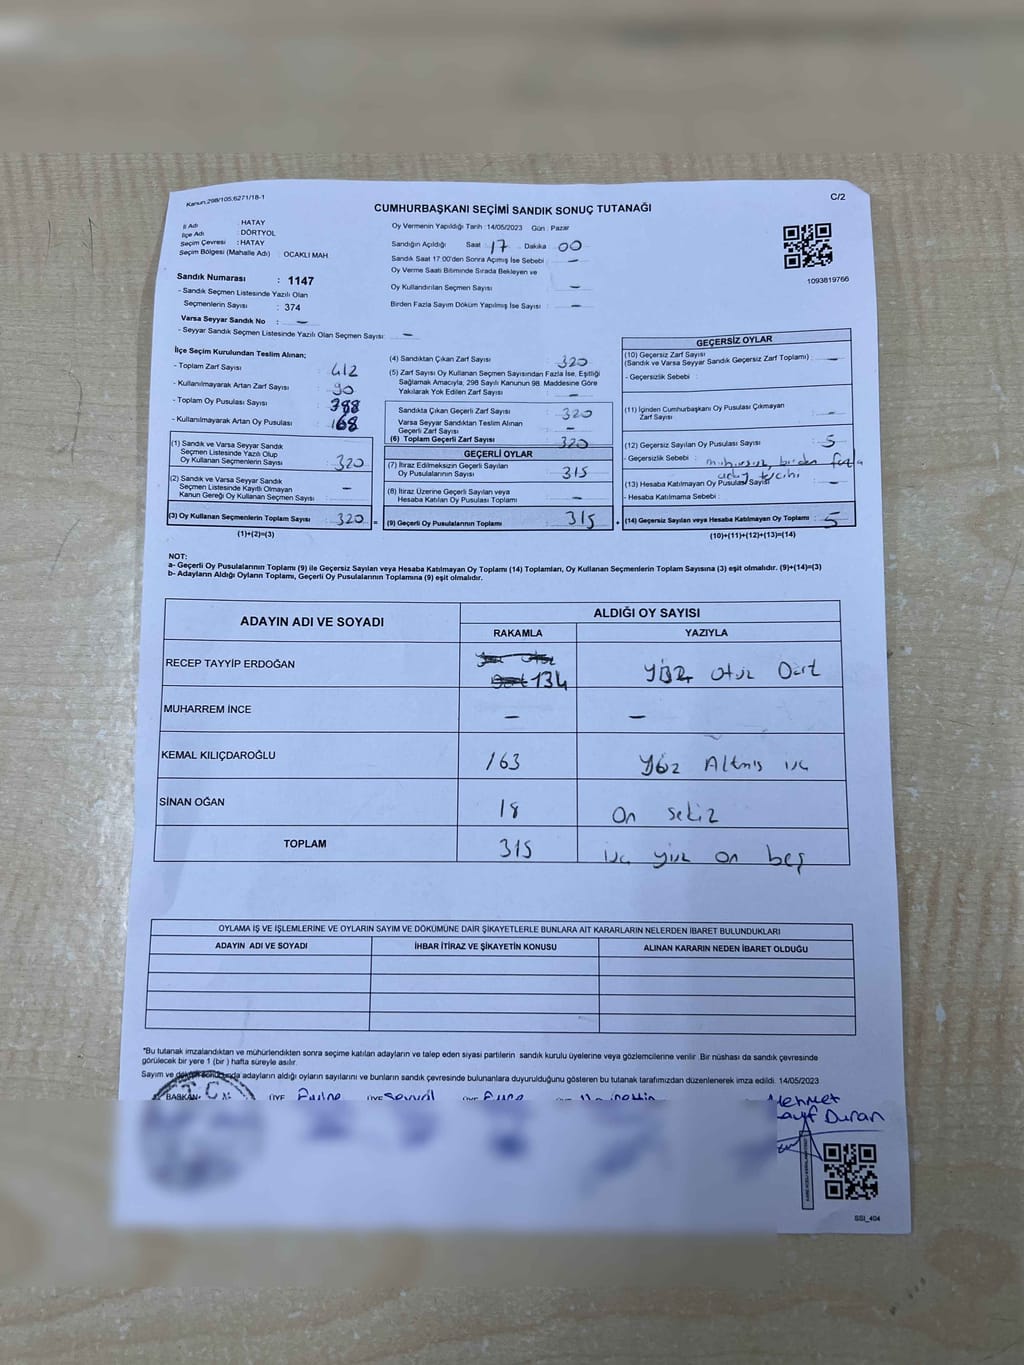 Kanun.298/105;6271/18-1
C/2
CUMHURBAŞKANI SEÇİMİ SANDIK SONUÇ TUTANAĞI
İl Adı : HATAY
İlçe Adı : DÖRTYOL
Seçim Çevresi : HATAY
Seçim Bölgesi (Mahalle Adı) OCAKLI MAH
Sandık Numarası : 1147
- Sandık Seçmen Listesinde Yazılı Olan
Seçmenlerin Sayısı : 374
Varsa Seyyar Sandık No : –
- Seyyar Sandık Seçmen Listesinde Yazılı Olan Seçmen Sayısı: –
Oy Vermenin Yapıldığı Tarih :14/05/2023 Gün : Pazar
Sandığın Açıldığı Saat 17 Dakika 00
Sandık Saat 17:00'den Sonra Açımış İse Sebebi : –
Oy Verme Saati Bitiminde Sırada Bekleyen ve
Oy Kullandırılan Seçmen Sayısı : –
Birden Fazla Sayım Döküm Yapılmış İse Sayısı : –
1093819766
İlçe Seçim Kurulundan Teslim Alınan;
- Toplam Zarf Sayısı : 412
- Kullanılmayarak Artan Zarf Sayısı : 90
- Toplam Oy Pusulası Sayısı : 388
- Kullanılmayarak Artan Oy Pusulası : 168
(1) Sandık ve Varsa Seyyar Sandık
Seçmen Listesinde Yazılı Olup
Oy Kullanan Seçmenlerin Sayısı : 320
(2) Sandık ve Varsa Seyyar Sandık
Seçmen Listesinde Kayıtlı Olmayan
Kanun Gereği Oy Kullanan Seçmen Sayısı : –
(3) Oy Kullanan Seçmenlerin Toplam Sayısı : 320 =
(1)+(2)=(3)
(4) Sandıktan Çıkan Zarf Sayısı : 320
(5) Zarf Sayısı Oy Kullanan Seçmen Sayısından Fazla İse, Eşitliği
Sağlamak Amacıyla; 298 Sayılı Kanunun 98. Maddesine Göre
Yakılarak Yok Edilen Zarf Sayısı : –
Sandıkta Çıkan Geçerli Zarf Sayısı : 320
Varsa Seyyar Sandıktan Teslim Alınan
Geçerli Zarf Sayısı : –
(6) Toplam Geçerli Zarf Sayısı : 320
GEÇERLİ OYLAR
(7) İtiraz Edilmeksizin Geçerli Sayılan
Oy Pusulalarının Sayısı : 315
(8) İtiraz Üzerine Geçerli Sayılan veya
Hesaba Katılan Oy Pusulası Toplamı : –
(9) Geçerli Oy Pusulalarının Toplamı : 315 +
GEÇERSİZ OYLAR
(10) Geçersiz Zarf Sayısı
(Sandık ve Varsa Seyyar Sandık Geçersiz Zarf Toplamı) : –
- Geçersizlik Sebebi :
(11) İçinden Cumhurbaşkanı Oy Pusulası Çıkmayan
Zarf Sayısı : –
(12) Geçersiz Sayılan Oy Pusulası Sayısı : 5
- Geçersizlik Sebebi : mühürsüz, birden fazla
aday tercihi
(13) Hesaba Katılmayan Oy Pusulası Sayısı : –
- Hesaba Katılmama Sebebi :
(14) Geçersiz Sayılan veya Hesaba Katılmayan Oy Toplamı : 5
(10)+(11)+(12)+(13)=(14)
NOT:
a- Geçerli Oy Pusulalarının Toplamı (9) ile Geçersiz Sayılan veya Hesaba Katılmayan Oy Toplamı (14) Toplamları, Oy Kullanan Seçmenlerin Toplam Sayısına (3) eşit olmalıdır. (9)+(14)=(3)
b- Adayların Aldığı Oyların Toplamı, Geçerli Oy Pusulalarının Toplamına (9) eşit olmalıdır.
ADAYIN ADI VE SOYADI
ALDIĞI OY SAYISI
RAKAMLA YAZIYLA
RECEP TAYYİP ERDOĞAN 134 Yüz otuz Dört
MUHARREM İNCE – –
KEMAL KILIÇDAROĞLU 163 Yüz Altmış üç
SİNAN OĞAN 18 On sekiz
TOPLAM 315 üç yüz on beş
OYLAMA İŞ VE İŞLEMLERİNE VE OYLARIN SAYIM VE DÖKÜMÜNE DAİR ŞİKAYETLERLE BUNLARA AİT KARARLARIN NELERDEN İBARET BULUNDUKLARI
ADAYIN ADI VE SOYADI İHBAR İTİRAZ VE ŞİKAYETİN KONUSU ALINAN KARARIN NEDEN İBARET OLDUĞU
*Bu tutanak imzalandıktan ve mühürlendikten sonra seçime katılan adayların ve talep eden siyasi partilerin sandık kurulu üyelerine veya gözlemcilerine verilir. Bir nüshası da sandık çevresinde
görülecek bir yere 1 (bir ) hafta süreyle asılır.
Sayım ve döküm sonucunda adayların aldığı oyların sayılarını ve bunların sandık çevresinde bulunanlara duyurulduğunu gösteren bu tutanak tarafımızdan düzenlenerek imza edildi. 14/05/2023
T.C.
BAŞKAN ÜYE ÜYE ÜYE ÜYE
Mehmet
Duran
SSI_404